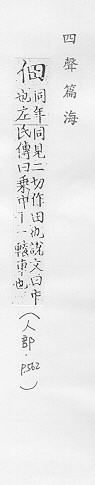 四聲篇海
佃
同年同見二切作田也說文曰中
也左氏傳曰乘中甸一轅車也
(人部.p.562)